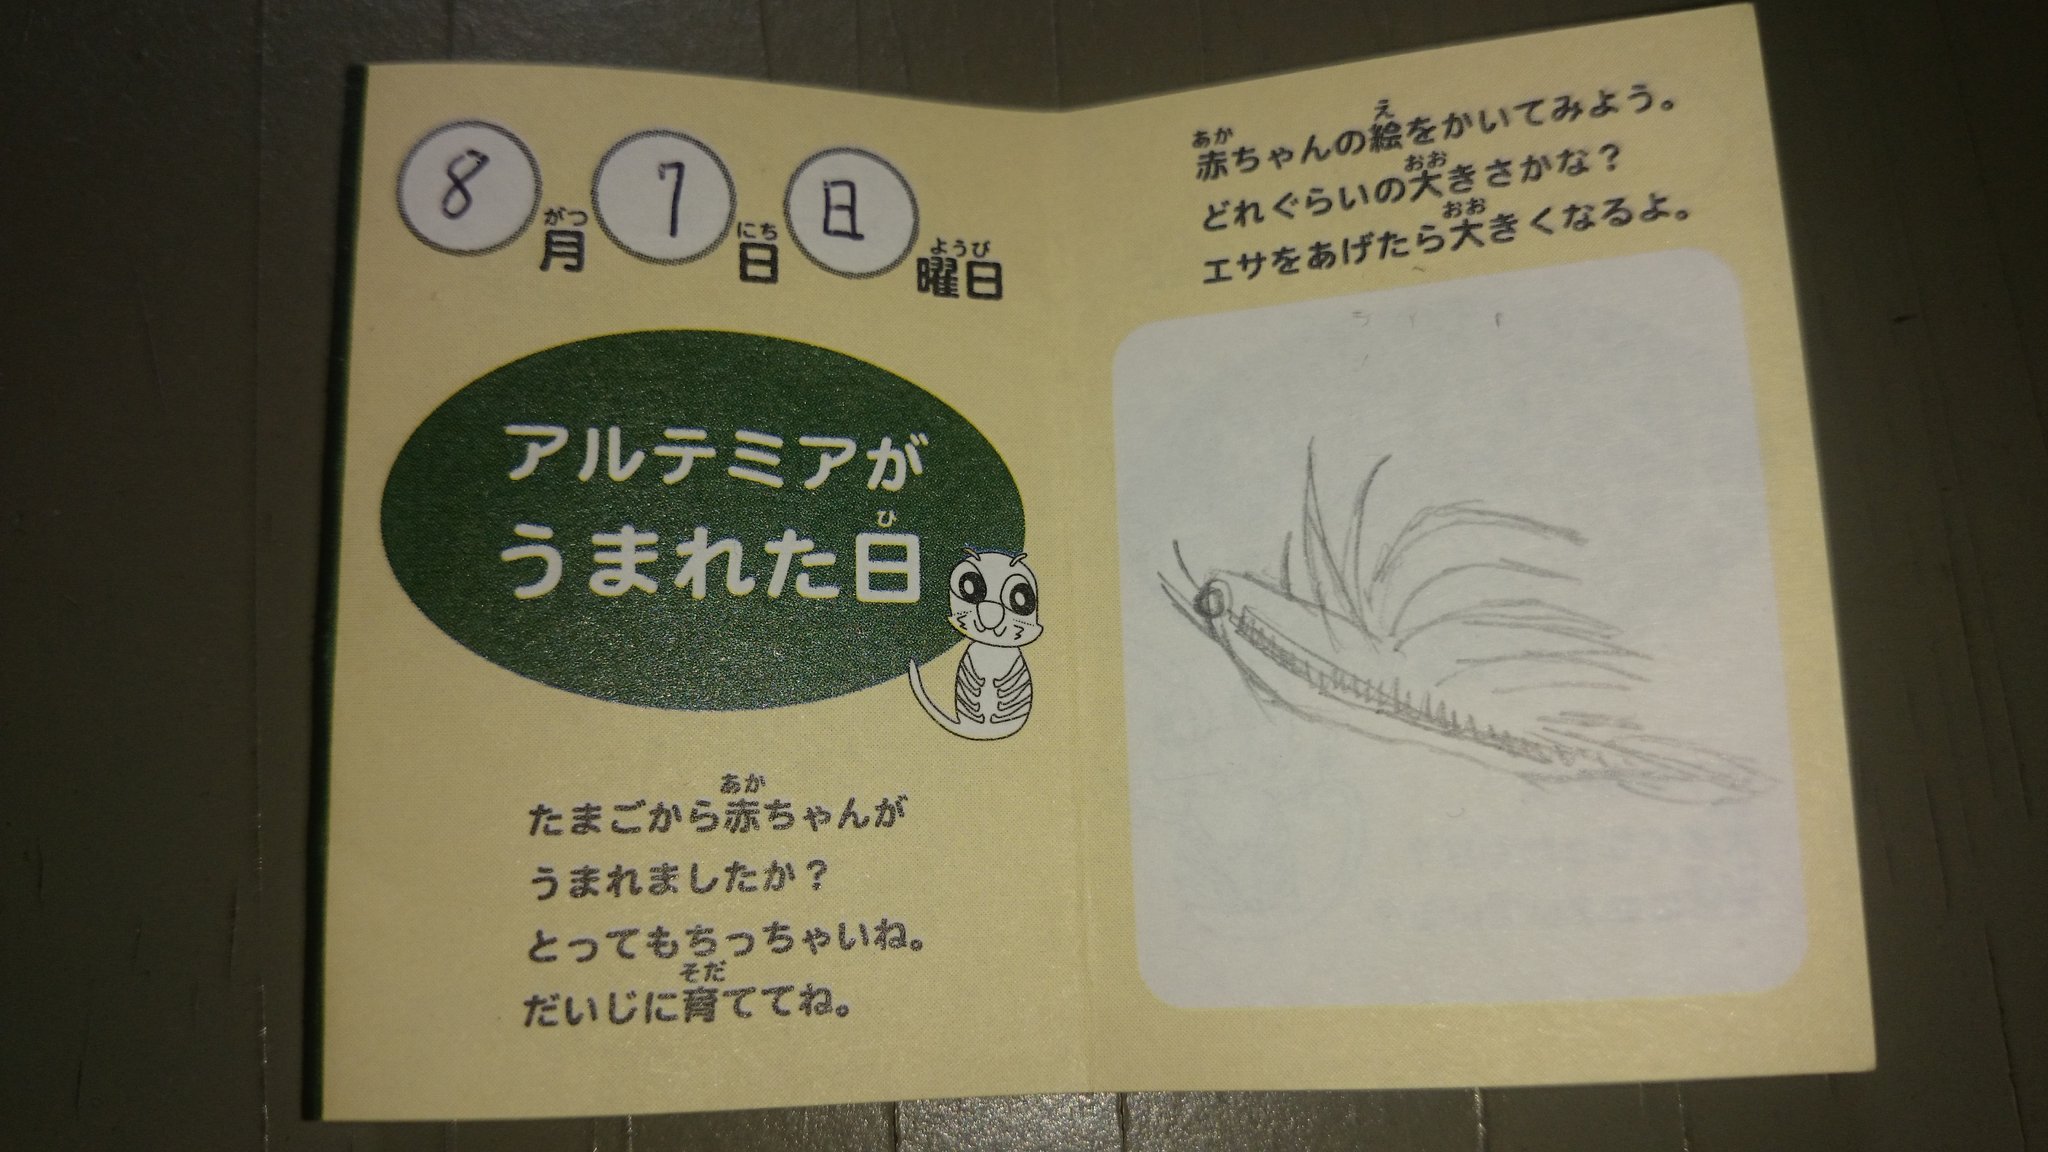 8月7日日曜日
がつ にち ようび
アルテミアが
うまれた日
ひ
たまごから赤ちゃんが
あか
うまれましたか？
とってもちっちゃいね。
だいじに育ててね。
そだ
赤ちゃんの絵をかいてみよう。
あか え
どれぐらいの大きさかな？
おお
エサをあげたら大きくなるよ。
おお